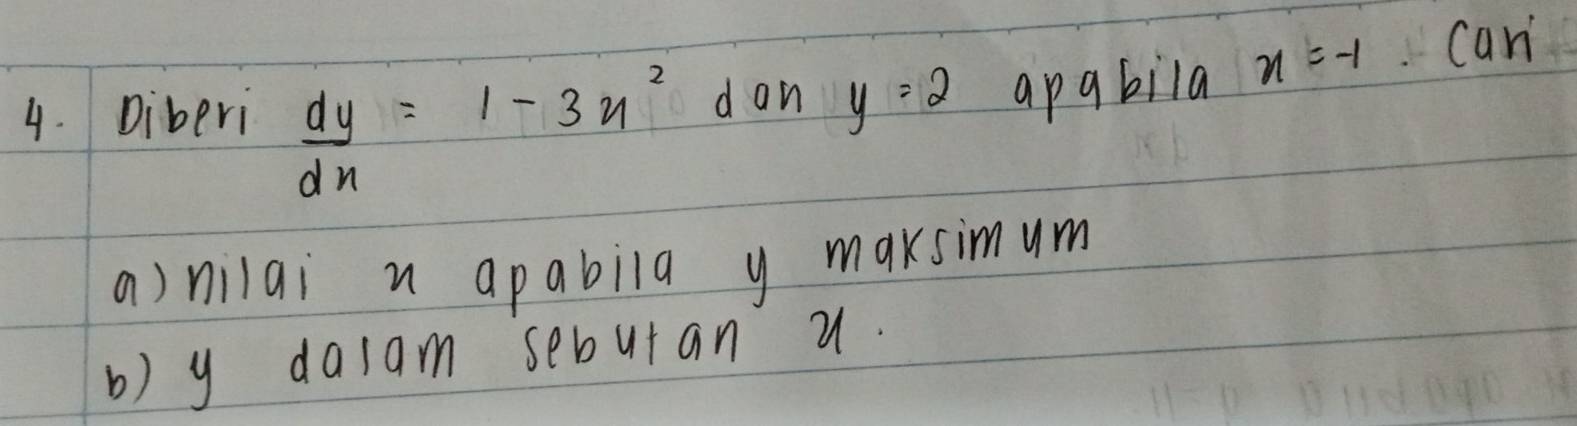 4. Diberi dy/dx = 1 - 3x² dan y = 2 apabila x = -1. Cari
a) nilai x apabila y maksimum
b) y dalam sebutan x.